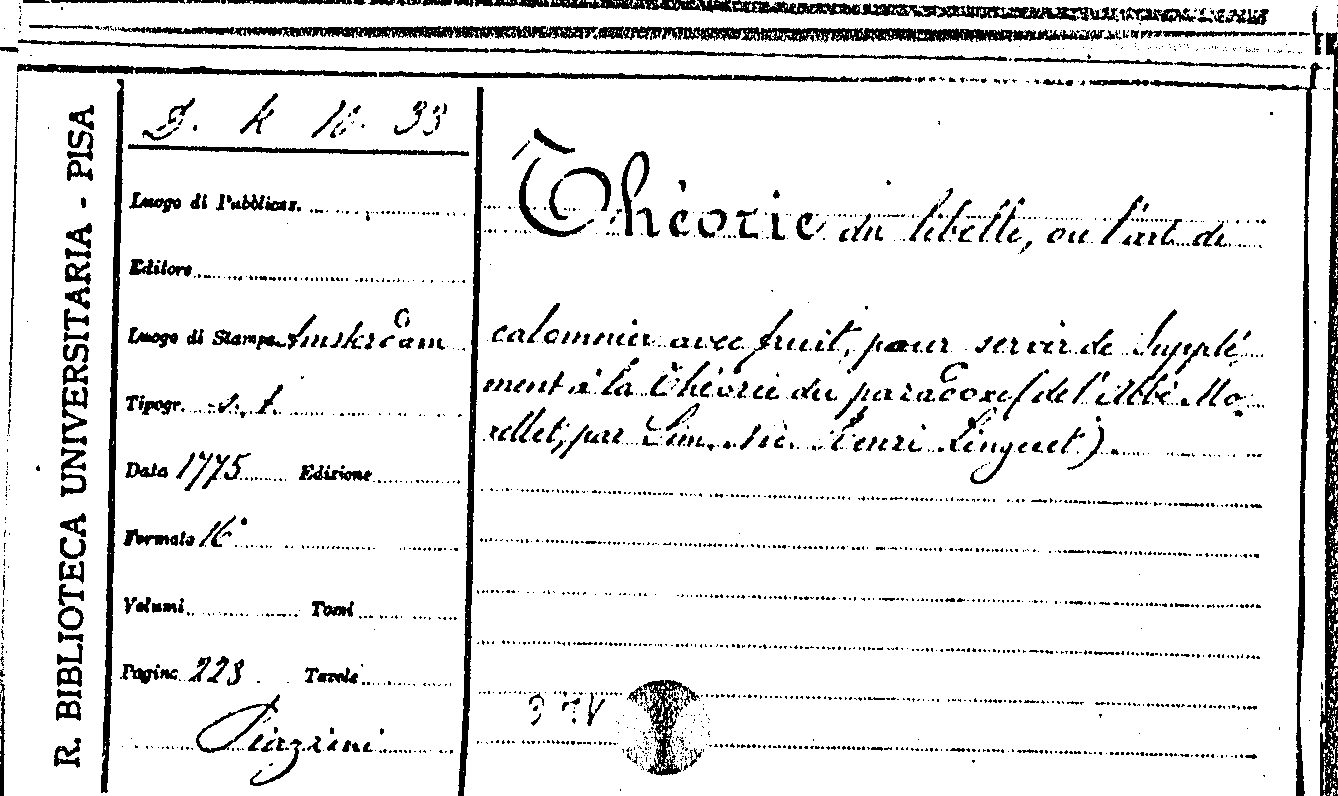 R. BIBLIOTECA UNIVERSITARIA - PISA
D. k 10. 33
Luogo di Pubblicaz.
Editore
Luogo di Stampa Amsterdam
Tipogr. s. t.
Data 1775 Edizione
Formato 16°
Volumi Tomi
Pagine 223 Tavole
Piazzini
Théorie du libelle, ou l'art de
calomnier avec fruit, pour servir de Supplé
ment à la Théorie du paradoxe (de l'Abbé Mo
rellet, par Sim. Nic. Henri Linguet).